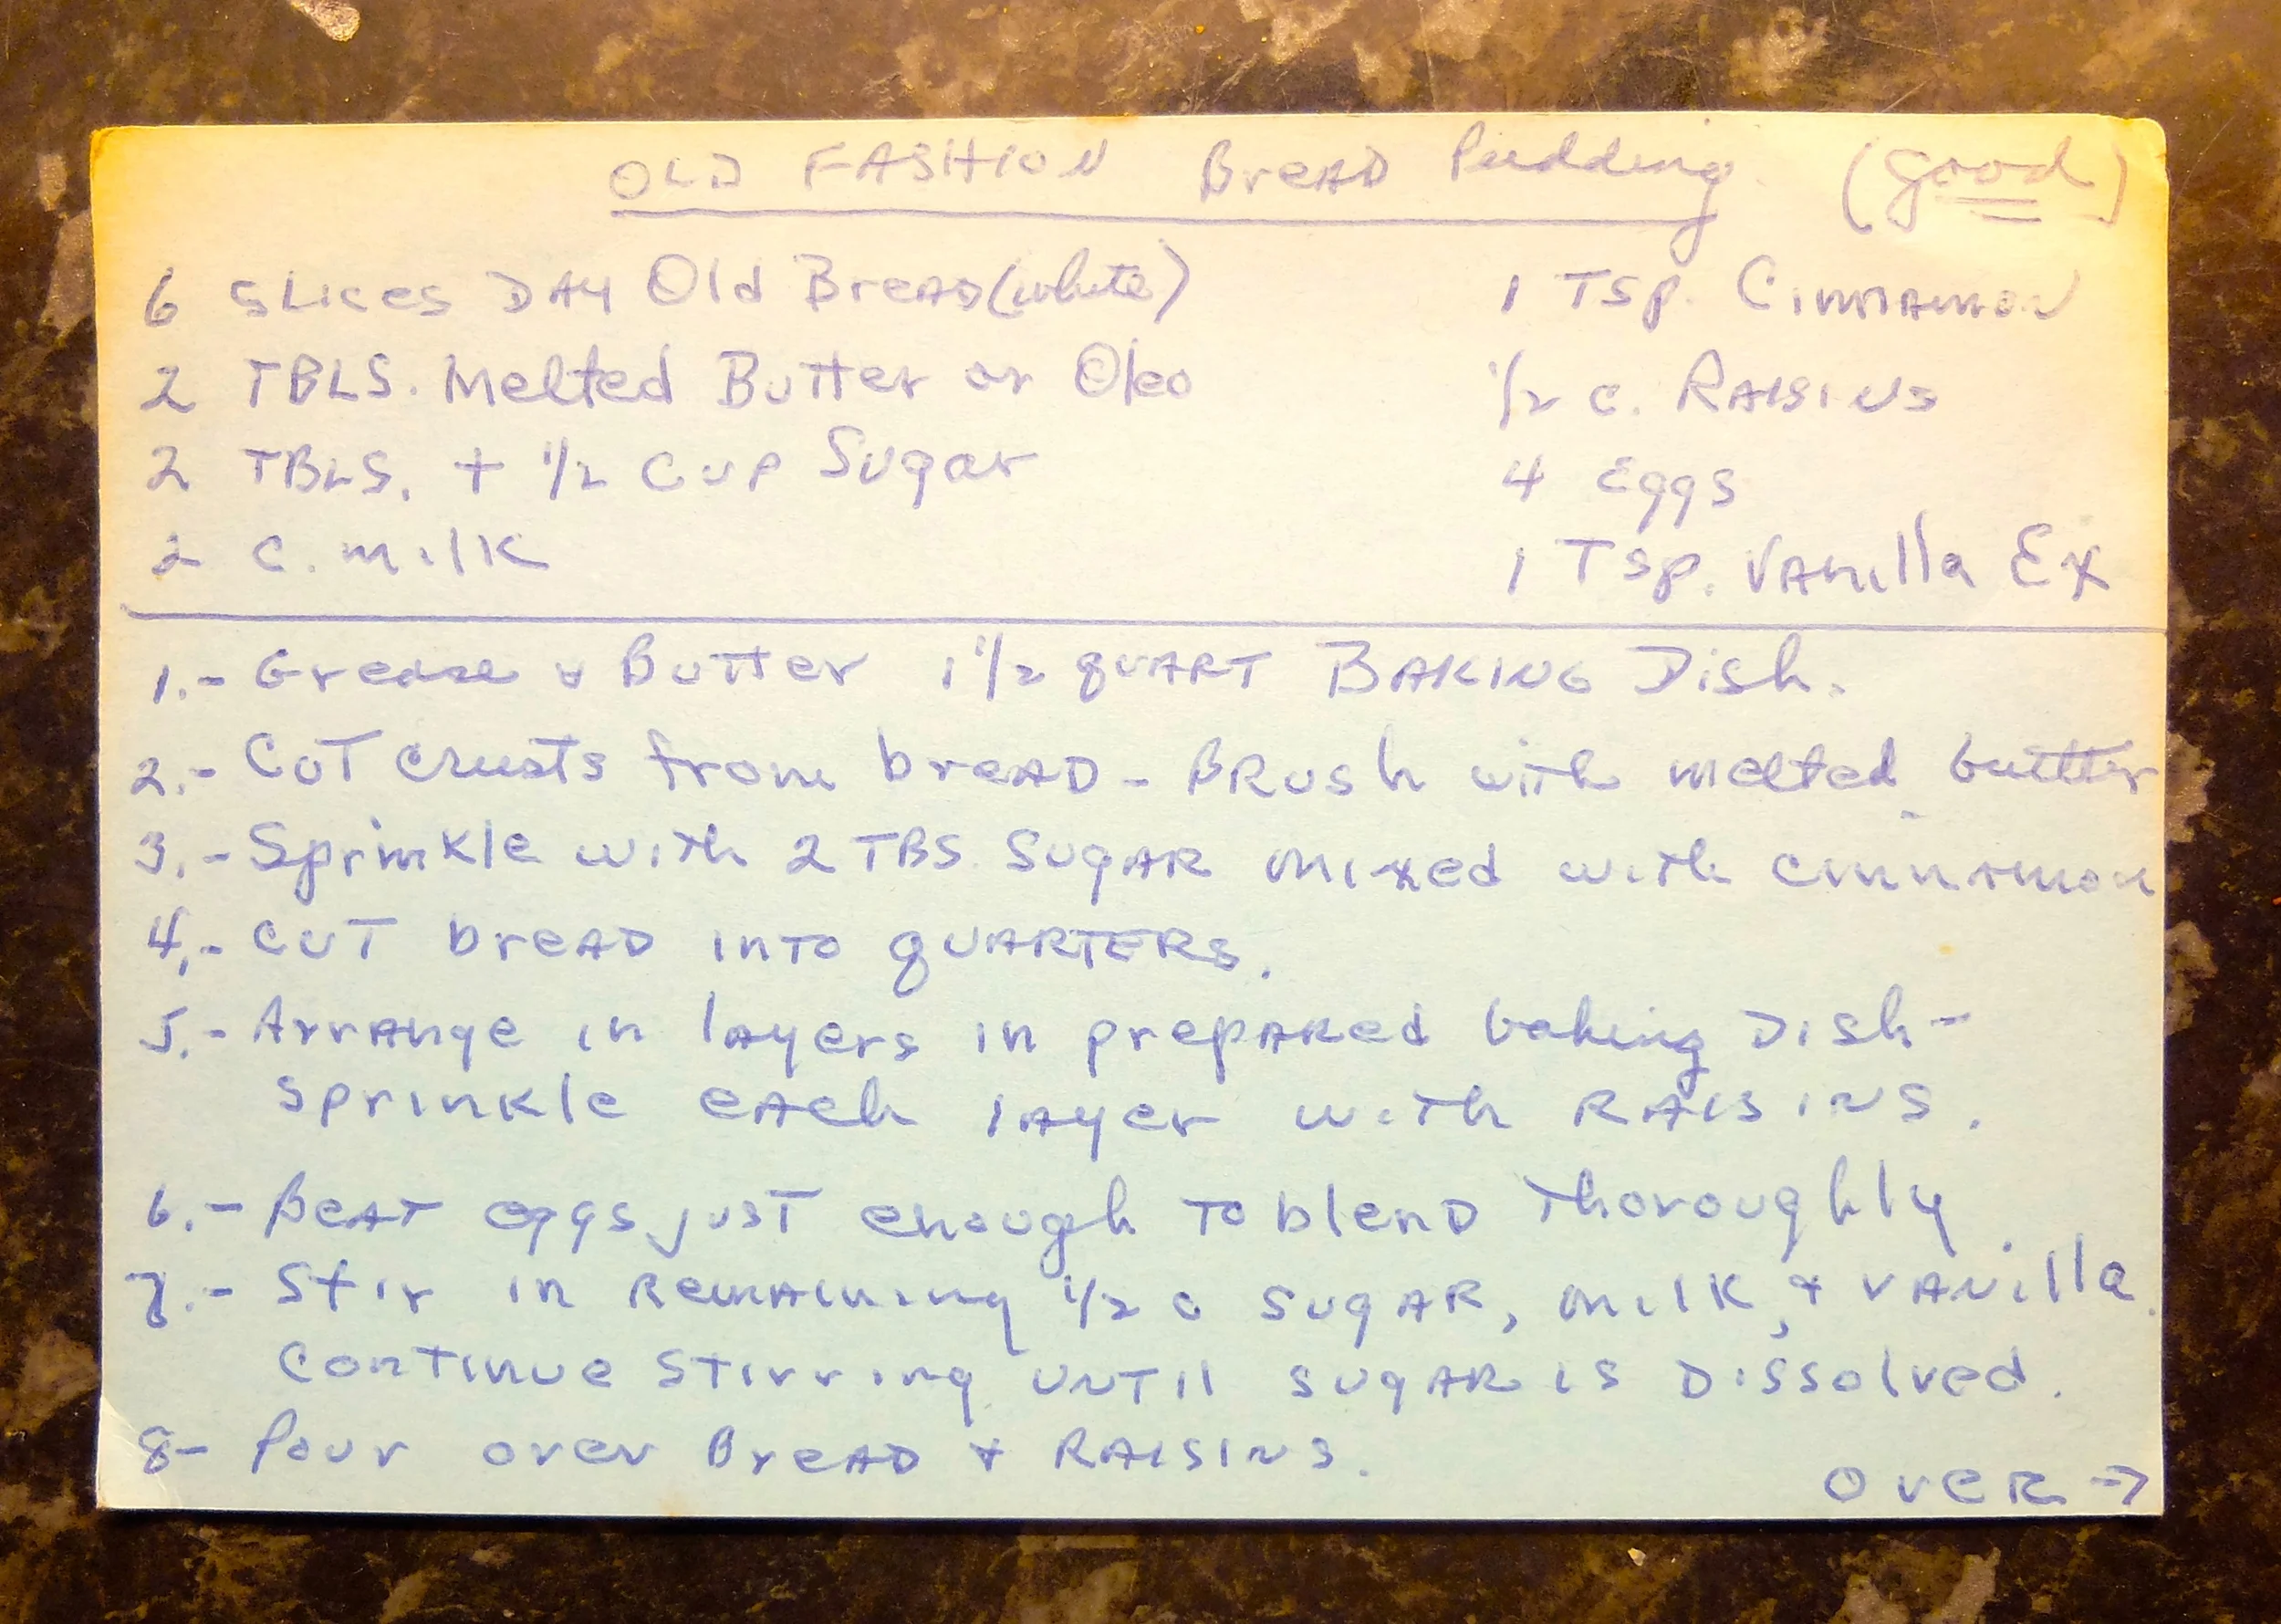 OLD FASHION Bread Pudding (good)
6 Slices Day Old Bread (white)
2 TBLS. Melted Butter or Oleo
2 TBLS. + 1/2 Cup Sugar
2 C. Milk
1 Tsp. Cinnamon
1/2 c. Raisins
4 Eggs
1 Tsp. Vanilla Ex
1.- Grease & Butter 1 1/2 quart Baking Dish.
2.- Cut crusts from bread - Brush with melted butter
3.- Sprinkle with 2 TBS. Sugar mixed with cinnamon
4.- Cut bread into quarters.
5.- Arrange in layers in prepared baking Dish -
sprinkle each layer with Raisins.
6.- Beat eggs just enough to blend thoroughly.
7.- Stir in Remaining 1/2 c sugar, milk, & vanilla.
Continue stirring until sugar is dissolved.
8- Pour over Bread & Raisins.
Over →